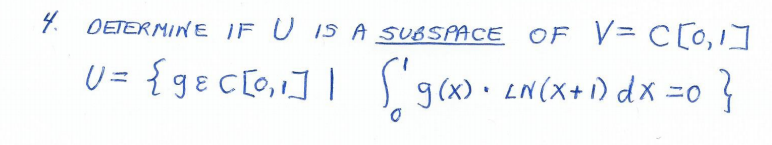 4. DETERMINE IF U IS A SUBSPACE OF V= C[0,1]
U = { g ε C[0,1] | ∫₀¹ g(x) · LN(X+1) dx =0 }